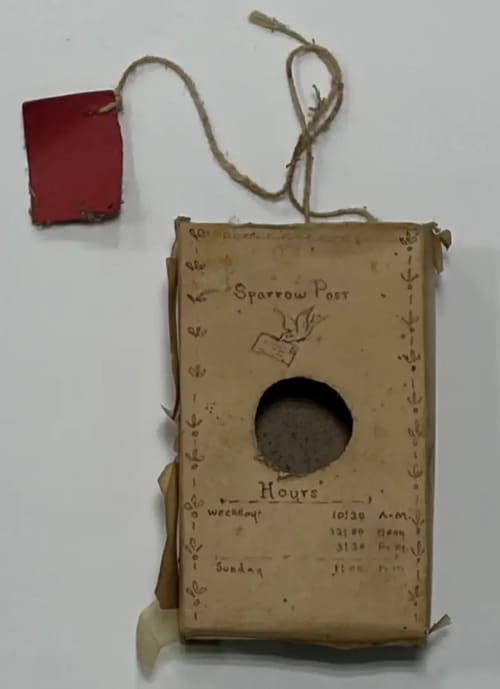 Sparrow Post
Hours
Weekday 10:30 A.M.
12:00 Noon
3:30 P.M.
Sunday